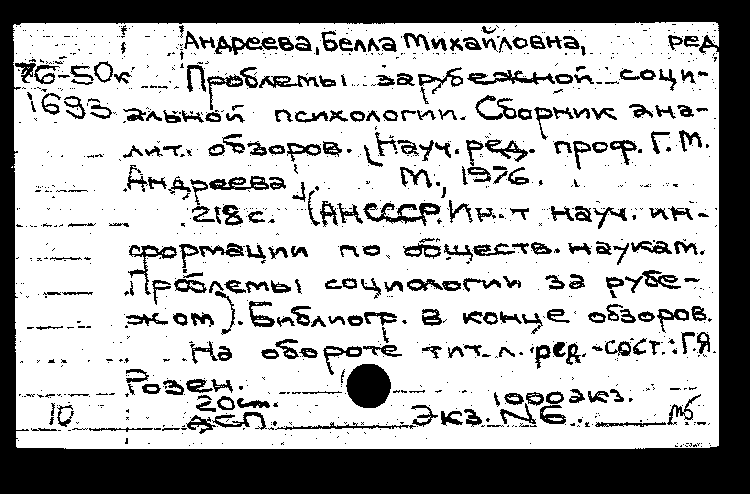 Андреева, Белла Михайловна, ред
76-50к Проблемы зарубежной соци-
1693 альной психологии. Сборник ана-
лит. обзоров. [Науч. ред. проф. Г. М.
Андреева]. М., 1976.
218 с. (АН СССР. Ин-т науч. ин-
формации по обществ. наукам.
Проблемы социологии за рубе-
жом). Библиогр. в конце обзоров.
На обороте тит. л. ред.-сост.: Г.Я
Розен.
20 1000 экз.
10 Экз. №6. т5